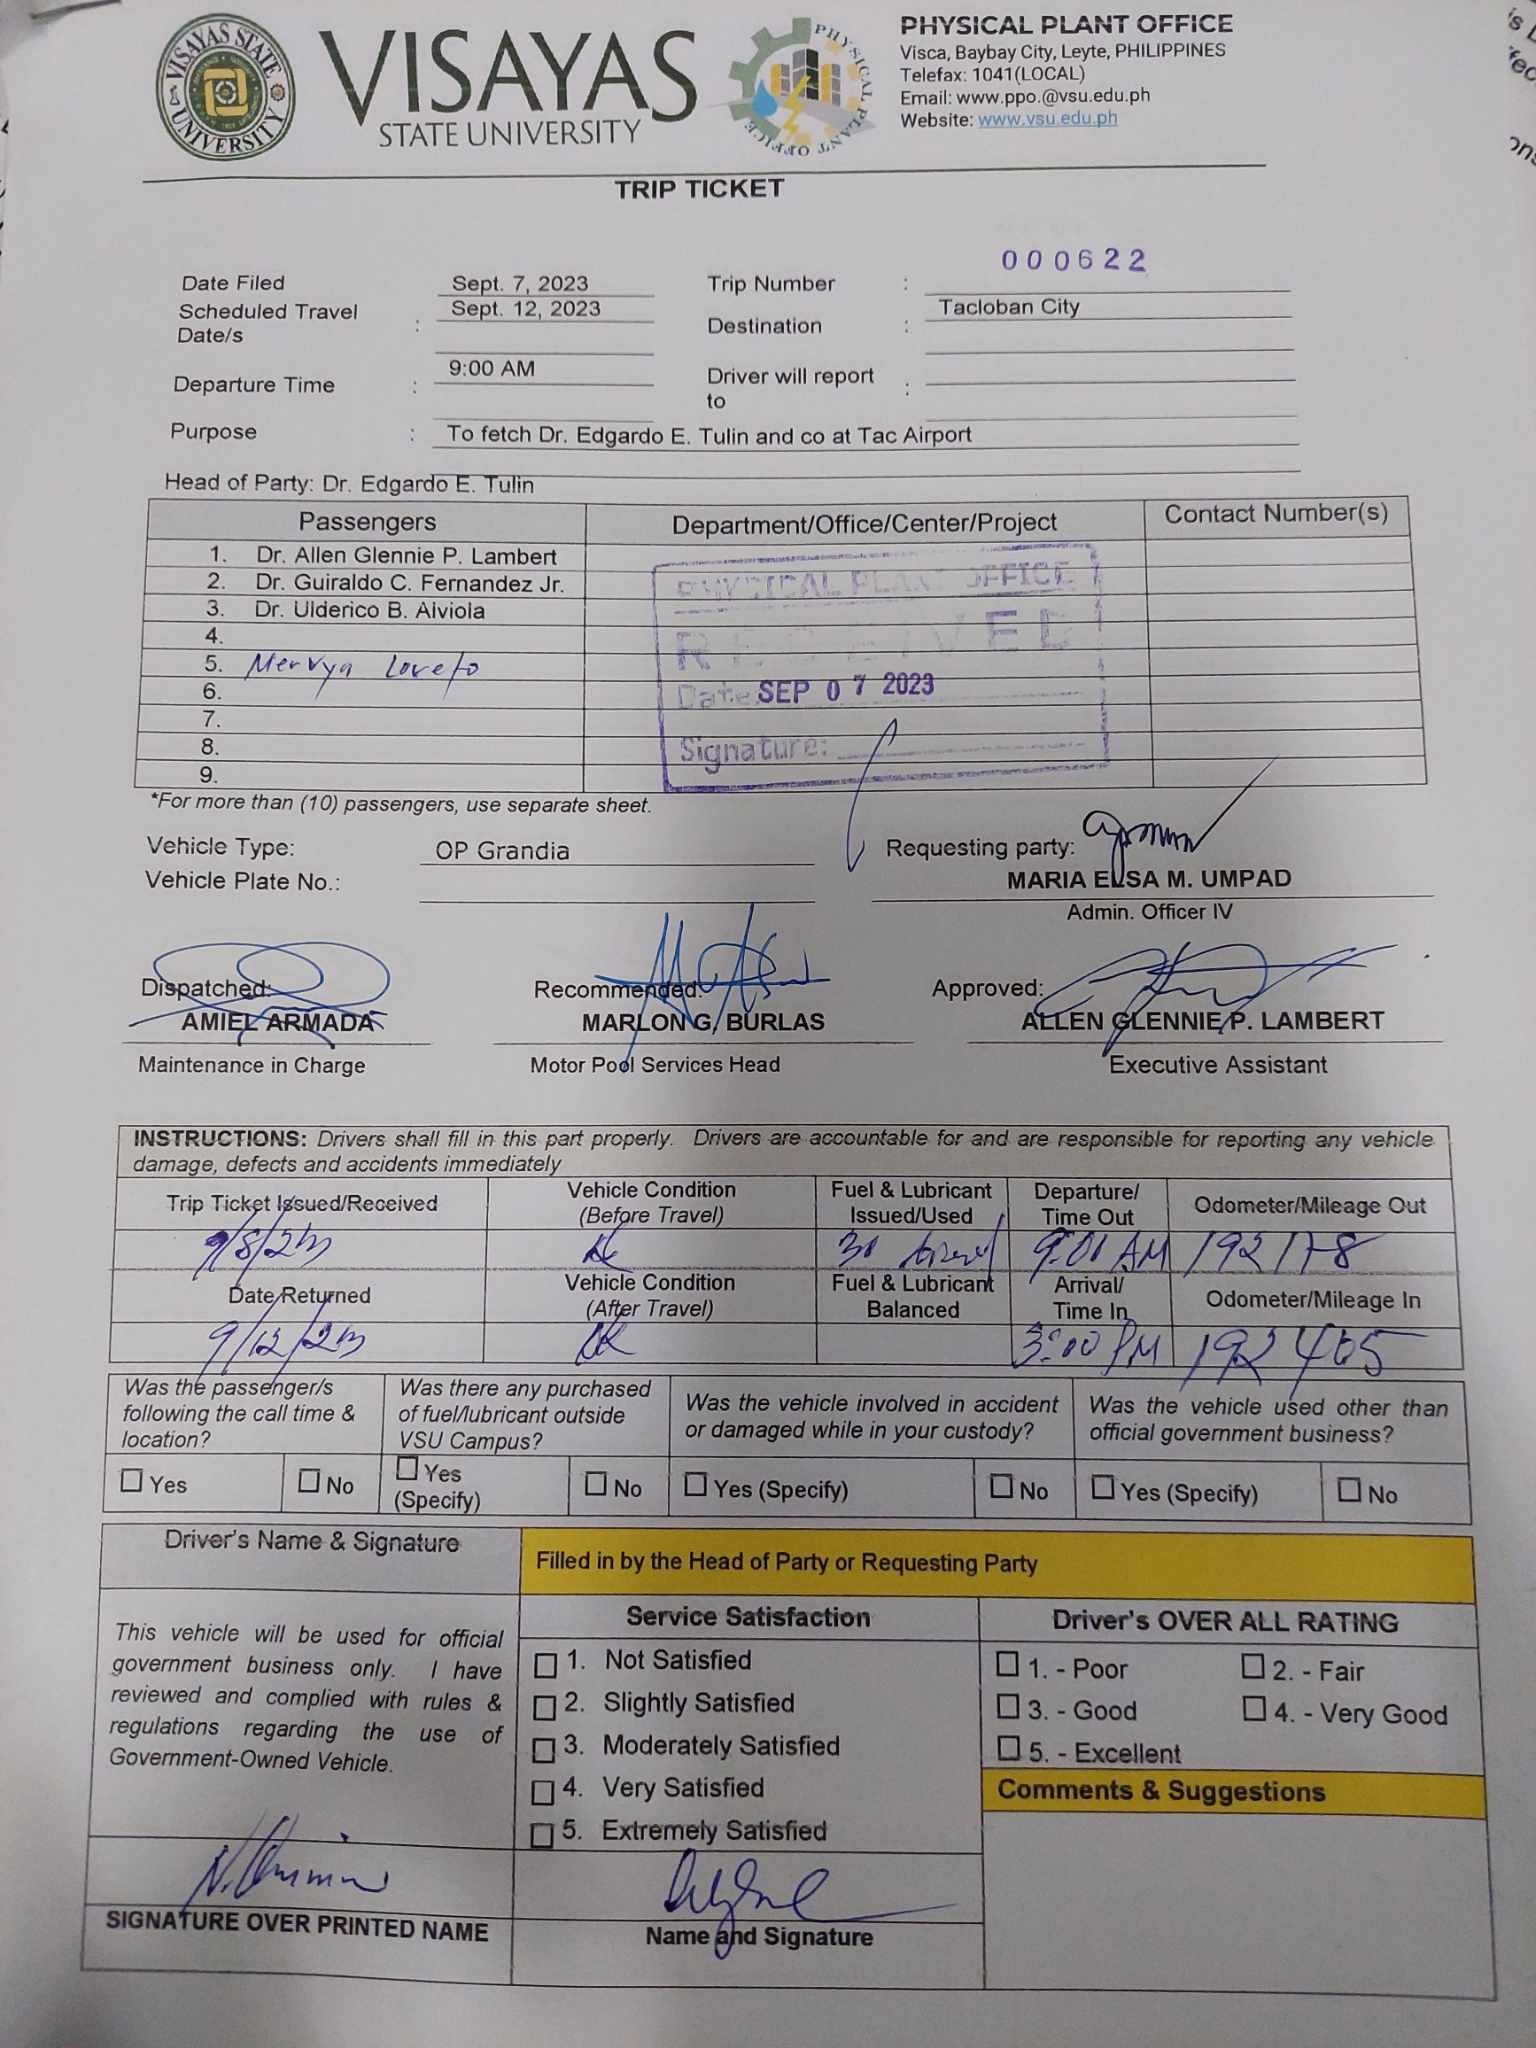 VISAYAS STATE UNIVERSITY
VISAYAS
STATE UNIVERSITY
PHYSICAL PLANT OFFICE
PHYSICAL PLANT OFFICE
Visca, Baybay City, Leyte, PHILIPPINES
Telefax: 1041(LOCAL)
Email: www.ppo.@vsu.edu.ph
Website: www.vsu.edu.ph
TRIP TICKET
000622
Date Filed Sept. 7, 2023 Trip Number :
Scheduled Travel Date/s : Sept. 12, 2023 Destination : Tacloban City
Departure Time : 9:00 AM Driver will report to :
Purpose : To fetch Dr. Edgardo E. Tulin and co at Tac Airport
Head of Party: Dr. Edgardo E. Tulin
Passengers Department/Office/Center/Project Contact Number(s)
1. Dr. Allen Glennie P. Lambert
2. Dr. Guiraldo C. Fernandez Jr.
3. Dr. Ulderico B. Alviola
4.
5. Mervyn Loreto
6.
7.
8.
9.
PHYSICAL PLANT OFFICE
RECEIVED
Date: SEP 07 2023
Signature:
*For more than (10) passengers, use separate sheet.
Vehicle Type: OP Grandia Requesting party:
Vehicle Plate No.: MARIA ELSA M. UMPAD
Admin. Officer IV
Dispatched: Recommended: Approved:
AMIEL ARMADA MARLON G, BURLAS ALLEN GLENNIE P. LAMBERT
Maintenance in Charge Motor Pool Services Head Executive Assistant
INSTRUCTIONS: Drivers shall fill in this part properly. Drivers are accountable for and are responsible for reporting any vehicle
damage, defects and accidents immediately
Trip Ticket Issued/Received Vehicle Condition (Before Travel) Fuel & Lubricant Issued/Used Departure/ Time Out Odometer/Mileage Out
9/8/23 OK 30 9:00 AM 192178
Date Returned Vehicle Condition (After Travel) Fuel & Lubricant Balanced Arrival/ Time In Odometer/Mileage In
9/12/23 OK 3:00 PM 192405
Was the passenger/s following the call time & location? Was there any purchased of fuel/lubricant outside VSU Campus? Was the vehicle involved in accident or damaged while in your custody? Was the vehicle used other than official government business?
Yes No Yes (Specify) No Yes (Specify) No Yes (Specify) No
Driver's Name & Signature
Filled in by the Head of Party or Requesting Party
This vehicle will be used for official
government business only. I have
reviewed and complied with rules &
regulations regarding the use of
Government-Owned Vehicle.
Service Satisfaction
1. Not Satisfied
2. Slightly Satisfied
3. Moderately Satisfied
4. Very Satisfied
5. Extremely Satisfied
Driver's OVER ALL RATING
1. - Poor 2. - Fair
3. - Good 4. - Very Good
5. - Excellent
Comments & Suggestions
SIGNATURE OVER PRINTED NAME
Name and Signature